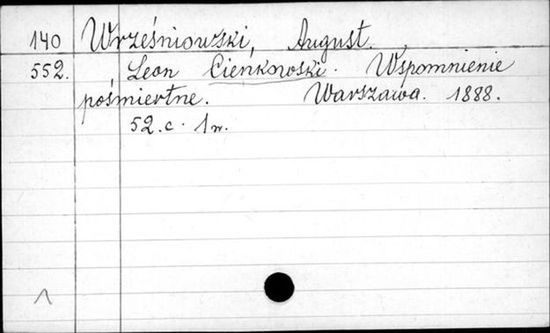 140 Wrześniowski, August.
552. Leon Cieńkowski. Wspomnienie
pośmiertne. Warszawa. 1888.
52. c. 1